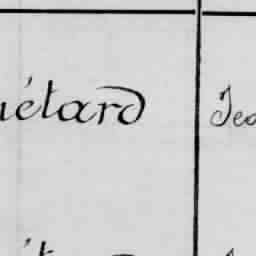 uétard Jea